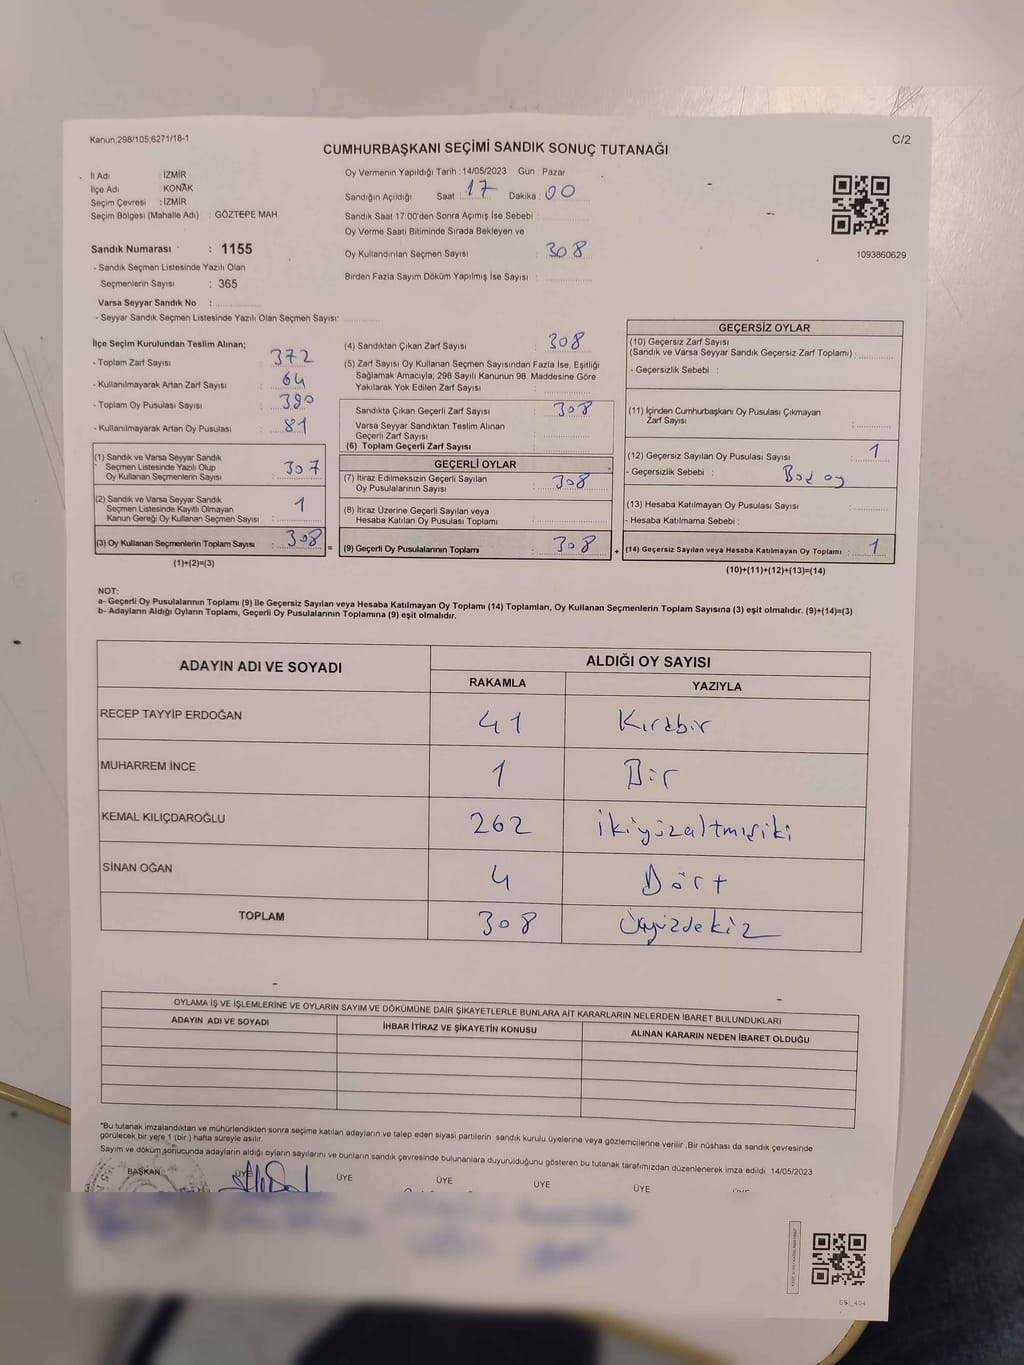 Kanun;298/105;6271/18-1
C/2
CUMHURBAŞKANI SEÇİMİ SANDIK SONUÇ TUTANAĞI
İl Adı : İZMİR
İlçe Adı : KONAK
Seçim Çevresi : İZMİR
Seçim Bölgesi (Mahalle Adı) : GÖZTEPE MAH.
Sandık Numarası : 1155
- Sandık Seçmen Listesinde Yazılı Olan
Seçmenlerin Sayısı : 365
Varsa Seyyar Sandık No :
- Seyyar Sandık Seçmen Listesinde Yazılı Olan Seçmen Sayısı:
Oy Vermenin Yapıldığı Tarih : 14/05/2023 Gün Pazar
Sandığın Açıldığı Saat 17 Dakika : 00
Sandık Saat 17:00'den Sonra Açımış İse Sebebi :
Oy Verme Saati Bitiminde Sırada Bekleyen ve
Oy Kullandırılan Seçmen Sayısı : 308
Birden Fazla Sayım Döküm Yapılmış İse Sayısı :
1093860629
İlçe Seçim Kurulundan Teslim Alınan;
- Toplam Zarf Sayısı : 372
- Kullanılmayarak Artan Zarf Sayısı : 64
- Toplam Oy Pusulası Sayısı : 390
- Kullanılmayarak Artan Oy Pusulası : 81
(1) Sandık ve Varsa Seyyar Sandık
Seçmen Listesinde Yazılı Olup
Oy Kullanan Seçmenlerin Sayısı : 307
(2) Sandık ve Varsa Seyyar Sandık
Seçmen Listesinde Kayıtlı Olmayan
Kanun Gereği Oy Kullanan Seçmen Sayısı : 1
(3) Oy Kullanan Seçmenlerin Toplam Sayısı : 308
(1)+(2)=(3)
(4) Sandıktan Çıkan Zarf Sayısı : 308
(5) Zarf Sayısı Oy Kullanan Seçmen Sayısından Fazla İse, Eşitliği
Sağlamak Amacıyla; 298 Sayılı Kanunun 98. Maddesine Göre
Yakılarak Yok Edilen Zarf Sayısı :
Sandıkta Çıkan Geçerli Zarf Sayısı : 308
Varsa Seyyar Sandıktan Teslim Alınan
Geçerli Zarf Sayısı :
(6) Toplam Geçerli Zarf Sayısı :
GEÇERLİ OYLAR
(7) İtiraz Edilmeksizin Geçerli Sayılan
Oy Pusulalarının Sayısı : 308
(8) İtiraz Üzerine Geçerli Sayılan veya
Hesaba Katılan Oy Pusulası Toplamı :
= (9) Geçerli Oy Pusulalarının Toplamı : 308
GEÇERSİZ OYLAR
(10) Geçersiz Zarf Sayısı
(Sandık ve Varsa Seyyar Sandık Geçersiz Zarf Toplamı) :
- Geçersizlik Sebebi :
(11) İçinden Cumhurbaşkanı Oy Pusulası Çıkmayan
Zarf Sayısı :
(12) Geçersiz Sayılan Oy Pusulası Sayısı : 1
- Geçersizlik Sebebi : Boş oy
(13) Hesaba Katılmayan Oy Pusulası Sayısı :
- Hesaba Katılmama Sebebi :
+ (14) Geçersiz Sayılan veya Hesaba Katılmayan Oy Toplamı : 1
(10)+(11)+(12)+(13)=(14)
NOT:
a- Geçerli Oy Pusulalarının Toplamı (9) ile Geçersiz Sayılan veya Hesaba Katılmayan Oy Toplamı (14) Toplamları, Oy Kullanan Seçmenlerin Toplam Sayısına (3) eşit olmalıdır. (9)+(14)=(3)
b- Adayların Aldığı Oyların Toplamı, Geçerli Oy Pusulalarının Toplamına (9) eşit olmalıdır.
ADAYIN ADI VE SOYADI
ALDIĞI OY SAYISI
RAKAMLA YAZIYLA
RECEP TAYYİP ERDOĞAN 41 Kırkbir
MUHARREM İNCE 1 Bir
KEMAL KILIÇDAROĞLU 262 ikiyüzaltmışiki
SİNAN OĞAN 4 Dört
TOPLAM 308 Üçyüzsekiz
OYLAMA İŞ VE İŞLEMLERİNE VE OYLARIN SAYIM VE DÖKÜMÜNE DAİR ŞİKAYETLERLE BUNLARA AİT KARARLARIN NELERDEN İBARET BULUNDUKLARI
ADAYIN ADI VE SOYADI
İHBAR İTİRAZ VE ŞİKAYETİN KONUSU
ALINAN KARARIN NEDEN İBARET OLDUĞU
*Bu tutanak imzalandıktan ve mühürlendikten sonra seçime katılan adayların ve talep eden siyasi partilerin sandık kurulu üyelerine veya gözlemcilerine verilir .Bir nüshası da sandık çevresinde
görülecek bir yere 1 (bir ) hafta süreyle asılır.
Sayım ve döküm sonucunda adayların aldığı oyların sayılarını ve bunların sandık çevresinde bulunanlara duyurulduğunu gösteren bu tutanak tarafımızdan düzenlenerek imza edildi. 14/05/2023
BAŞKAN ÜYE ÜYE ÜYE ÜYE ÜYE